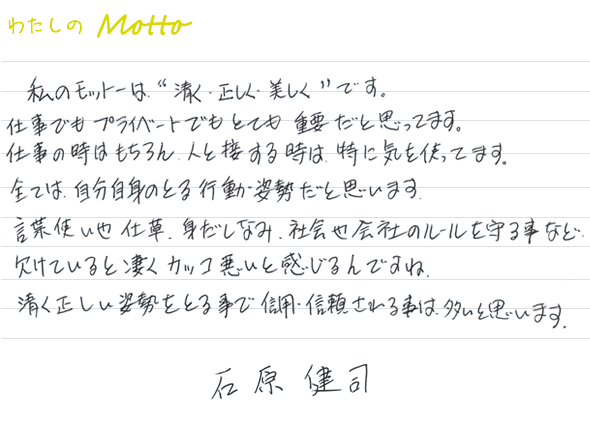 わたしの Motto
私のモットーは、“清く・正しく・美しく”です。
仕事でもプライベートでもとても重要だと思ってます。
仕事の時はもちろん、人と接する時は、特に気を使ってます。
全ては、自分自身のとる行動か姿勢だと思います。
言葉使いや仕草、身だしなみ、社会や会社のルールを守る事など、
欠けていると凄くカッコ悪いと感じるんですね。
清く正しい姿勢をとる事で信用・信頼される事は、多いと思います。
石原健司